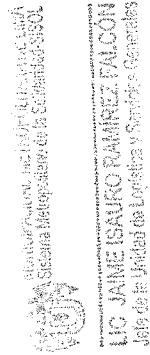 Sistema Metropolitano de la Solidaridad - SISOL
Lic. JAIME ISAURO RAMIREZ FALCON
Jefe de la Unidad de Logística y Servicios Generales